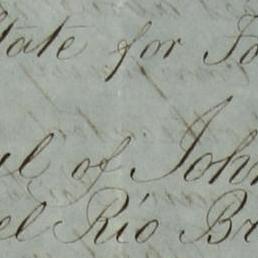 tate for Jo
ul of John
el Rio Br